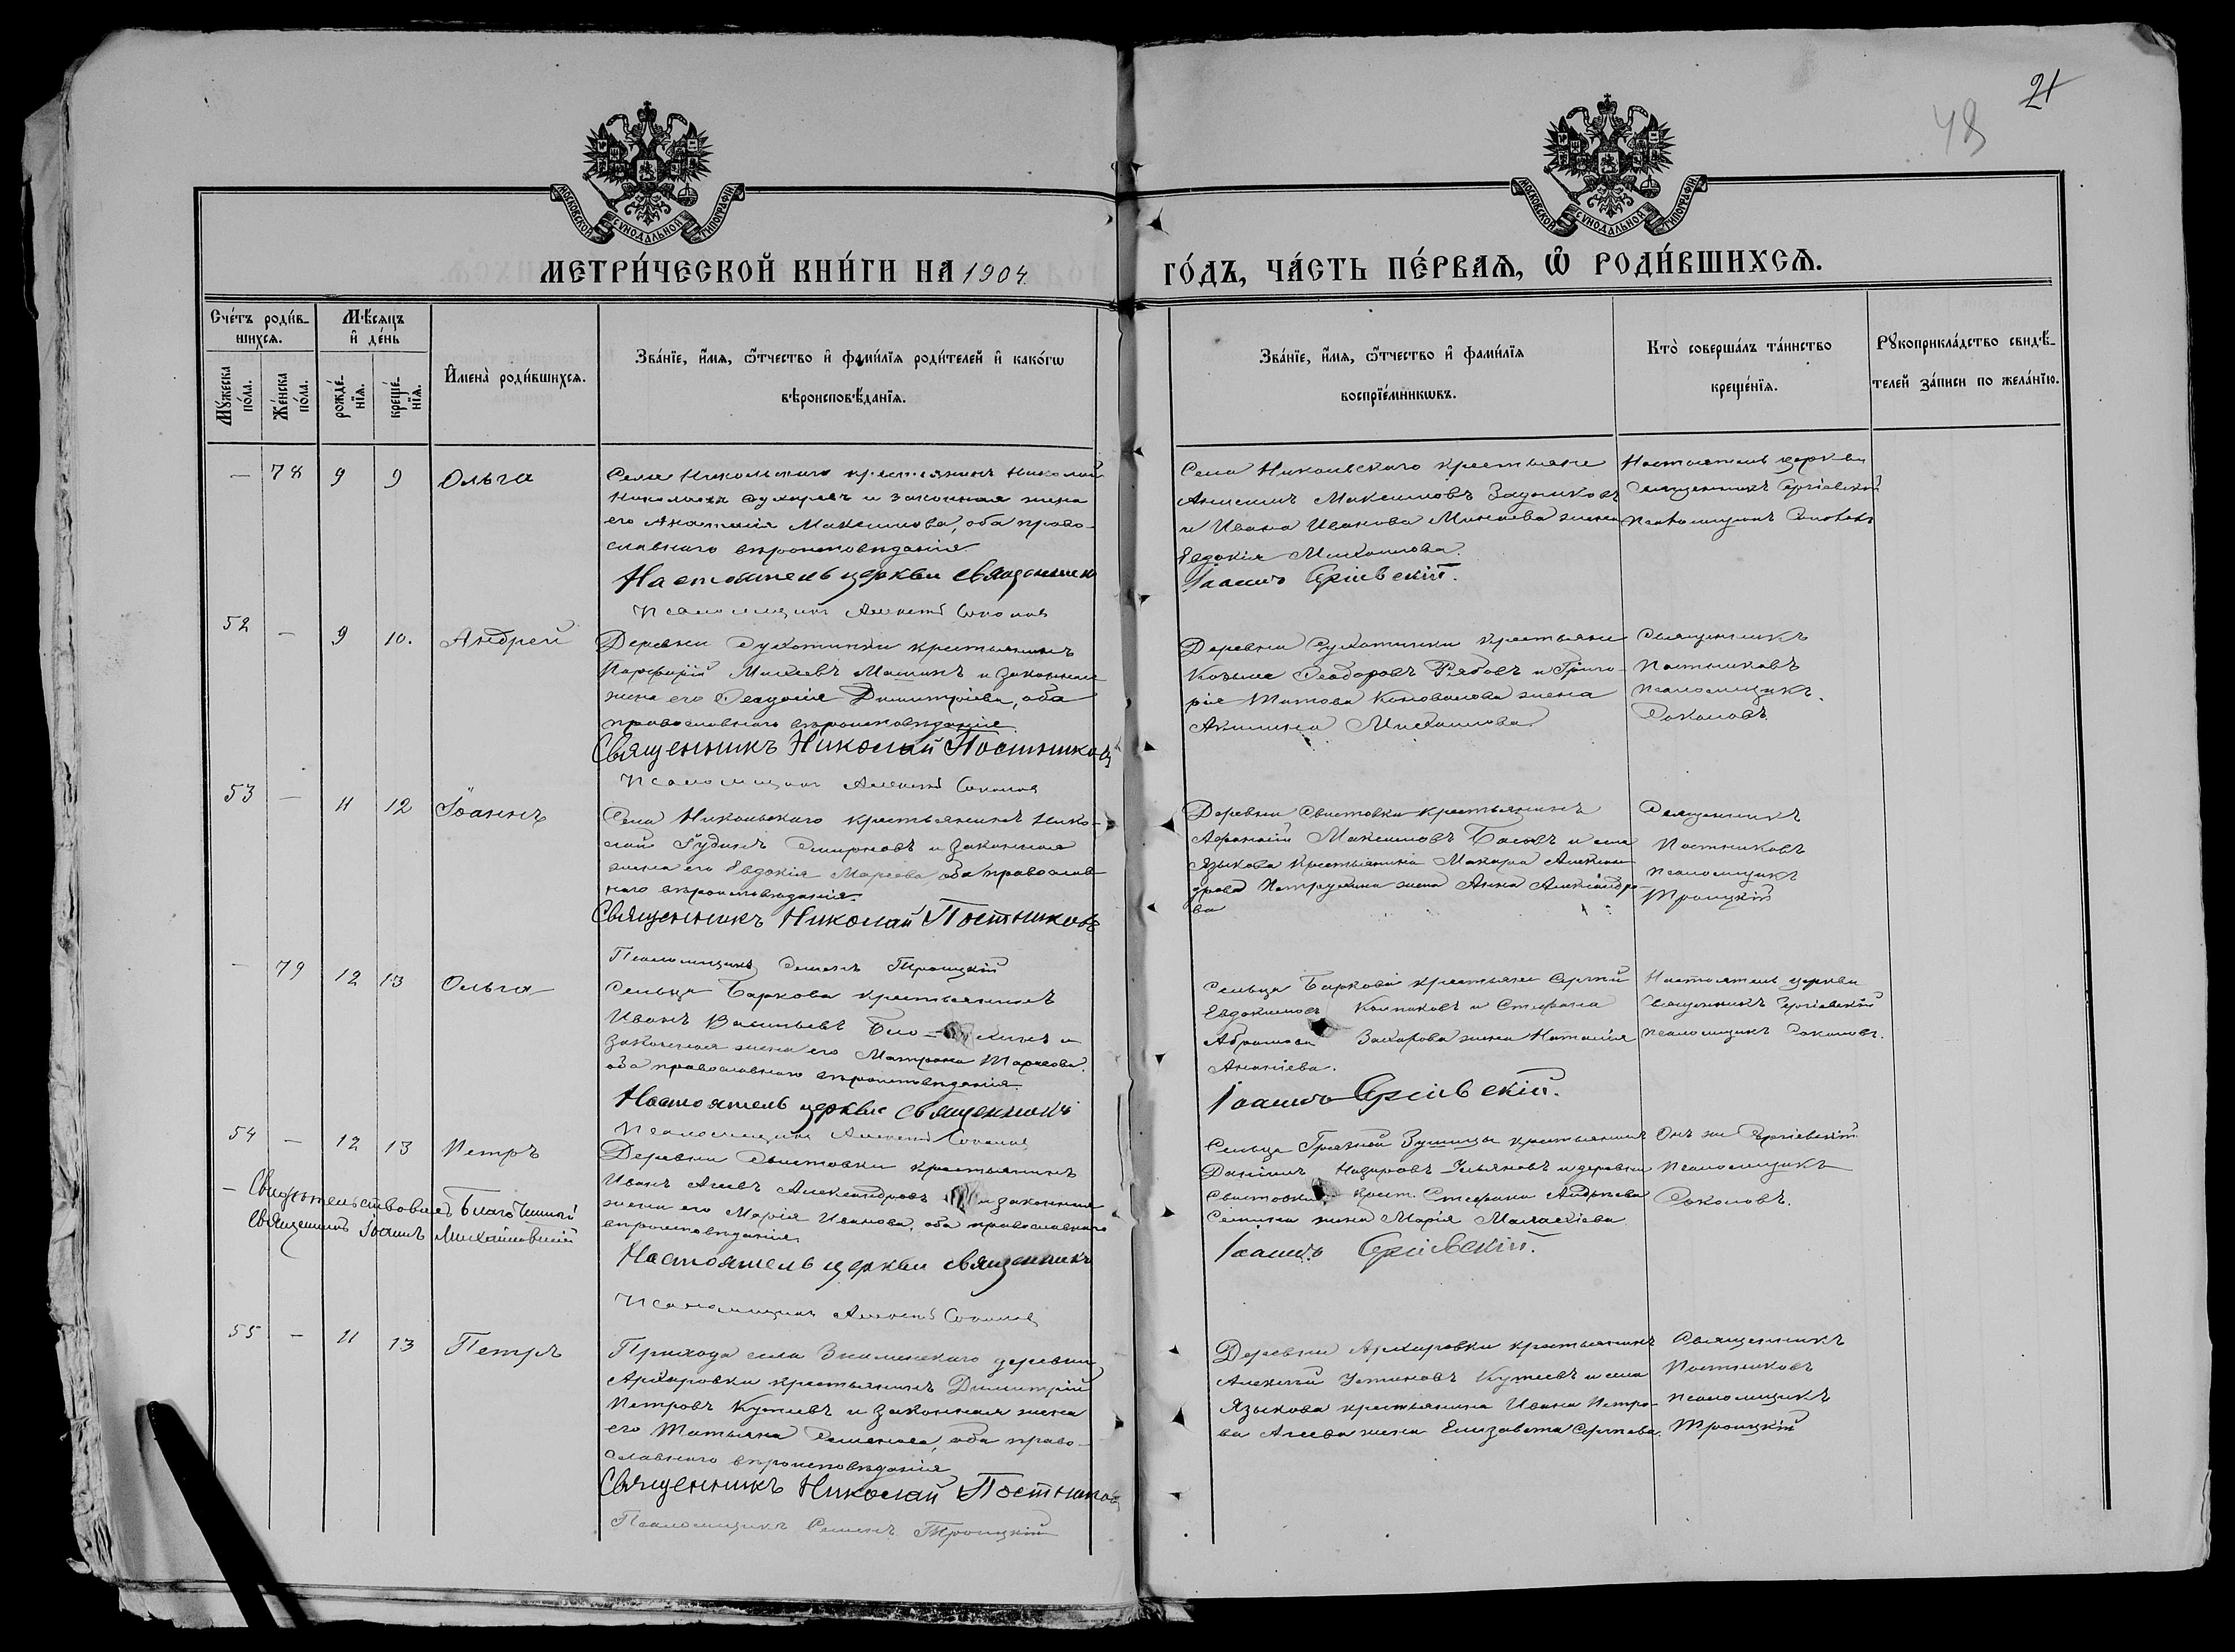 21
48
МОСКОВСКОЙ СѴНОДАЛЬНОЙ ТИПОГРАФІИ
МОСКОВСКОЙ СѴНОДАЛЬНОЙ ТИПОГРАФІИ
МЕТРИ́ЧЕСКОЙ КНИ́ГИ НА 1904
ГО́ДЪ, ЧА́СТЬ ПЕ́РВАѦ, Ѽ РОДИ́ВШИХСѦ.
Сче́тъ роди́в-
шихсѧ.
Мꙋ́жеска по́ла.
Же́нска по́ла.
Мѣ́сѧцъ и҆ де́нь
рожде́-
нїѧ.
креще́-
нїѧ.
И҆мена̀ роди́вшихсѧ.
Зва́нїе, и҆́мѧ, ѻ҆́тчество и҆ фами́лїѧ роди́телей и҆ како́гѡ
вѣроисповѣ́данїѧ.
Зва́нїе, и҆́мѧ, ѻ҆́тчество и҆ фами́лїѧ
воспрїе́мникѡвъ.
Кто̀ соверша́лъ та́инство
креще́нїѧ.
Рꙋкоприкла́дство свидѣ́-
телей за́писи по жела́нїю.
— 78 9 9 Ольга
Села Никольскаго крестьянинъ Николай
Николаевъ Сухаревъ и законная жена
его Анатолія Максимова, оба право-
славнаго вѣроисповѣданія
Настоятель церкви священникъ
Псаломщикъ Алексѣй Соколовъ
Села Никольскаго крестьяне
Максимовъ
и Ивана Иванова Минаева жена
Евдокія Михаилова.
Іоаннъ Сергіевскій.
Настоятель церкви
Священникъ Сергіевскій
Псаломщикъ Соколовъ
52 — 9 10. Андрей
Деревни Сухотинки крестьянинъ
Порфирій Машинъ и законная
жена его Ѳеодосія Димитріева, оба
православнаго вѣроисповѣданія
Священникъ Николай Постниковъ
Псаломщикъ Алексѣй Соколовъ
Деревни Сухотинки крестьяне
Козьма Ѳеодоровъ Рябовъ и Григо-
рія Титова Коновалова жена
Акилина Михаилова
Священникъ
Постниковъ
псаломщикъ
Соколовъ.
53 — 11 12 Іоаннъ
Села Никольскаго крестьянинъ Нико-
лай Іудинъ Смирновъ и законная
жена его Евдокія оба православ-
наго вѣроисповѣданія.
Священникъ Николай Постниковъ
Псаломщикъ Семенъ Троицкій
Деревни Свистовки крестьянинъ
Аѳанасій Максимовъ и села
Языкова крестьянина Макара Алексан-
дрова жена Анна Александро-
ва
Священникъ
Постниковъ
псаломщикъ
Троицкій
— 79 12 13 Ольга
Сельца Баркова крестьянинъ
Иванъ Васильевъ и
законная жена его Матрона Тарасова.
оба православнаго вѣроисповѣданія.
Настоятель церкви священникъ
Псаломщикъ Алексѣй Соколовъ
Сельца Баркова крестьяне Сергій
Евдокимовъ и Стефана
Абрамова Захарова жена Наталія
Ананіева.
Іоаннъ Сергіевскій.
Настоятель церкви
священникъ Сергіевскій
псаломщикъ Соколовъ.
54 — 12 13 Петръ
Деревни Свистовки крестьянинъ
Иванъ Агеевъ Александровъ и законная
жена его Марія Иванова, оба православнаго
вѣроисповѣданія
Настоятель церкви священникъ
Псаломщикъ Алексѣй Соколовъ
Сельца Грязной крестьянинъ
Даніилъ Назаровъ Ульяновъ и деревни
Свистовки крест. Стефана Андреева
жена Марія Малахіева
Іоаннъ Сергіевскій.
Онъ же Сергіевскій
Псаломщикъ
Соколовъ.
— Свидѣтельствовалъ Благочинный
Священникъ Іоаннъ Михайловскій
55 — 11 13 Петръ
Прихода села Знаменскаго деревни
Архаровки крестьянинъ Димитрій
Петровъ и законная жена
его Татьяна Семенова, оба право-
славнаго вѣроисповѣданія
Священникъ Николай Постниковъ
Псаломщикъ Семенъ Троицкій
Деревни Архаровки крестьянинъ
Алексѣй Устиновъ и села
Языкова крестьянина Ивана Петро-
ва Агеева жена Елизавета Сергѣева.
Священникъ
Постниковъ
псаломщикъ
Троицкій